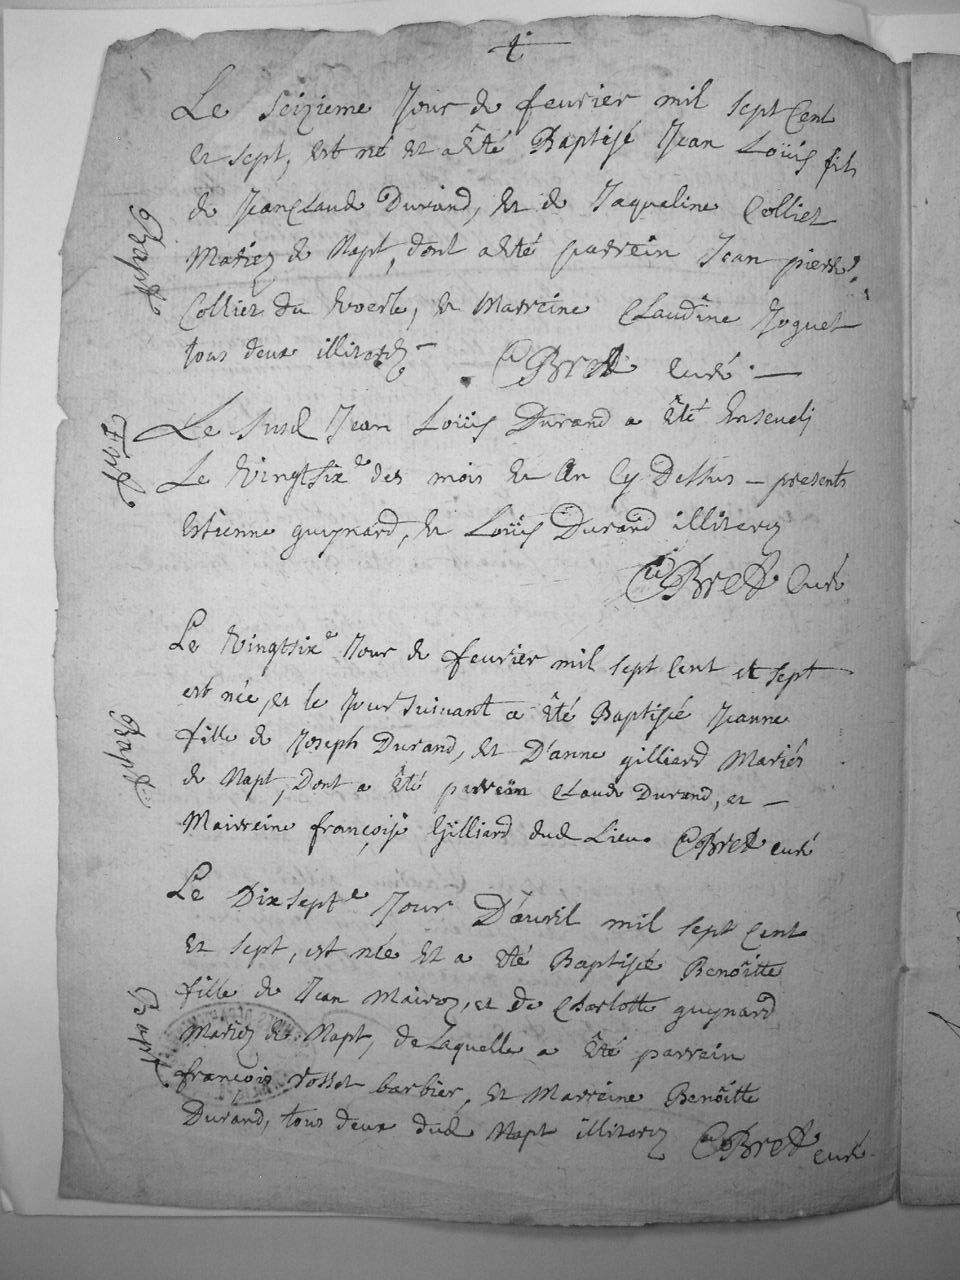 Le seizieme Jour de feurier mil sept Cent
et sept, est né et a êté Baptisé Jean Loüis fils
de Jean Claude Durand, et de Jaqueline Collier
Mariez de Napt, dont a êté parrein Jean pierre
Collier du, et Marreine Claudine
tous deux illiterez CBret Curé
Le susd Jean Loüis Durand a êté Enseueli
Le Vingtsixe des mois et an Cy Dessus presents
estienne guynard, et Loüis Durand illiterez
CBret Curé
Le Vingtsixe Jour de feurier mil sept Cent et sept
est née, et le jour suiuant a êté Baptisée Jeanne
fille de Joseph Durand, et D'anne gilliard Mariés
de Napt, Dont a êté parrein Claude Durand, et
Marreine françoise Gilliard dud Lieu CBret curé
Le Dix septe Jour D'auril mil sept Cent
et sept, est née et a êté Baptisée Benoîtte
fille de Jean, et de Charlotte guynard
Mariez de Napt, de Laquelle a êté parrein
françois barbier, et Marreine Benoîtte
Durand, tous deux dud Napt illiterez CBret curé
Bapt.
Bapt.
Bapt.